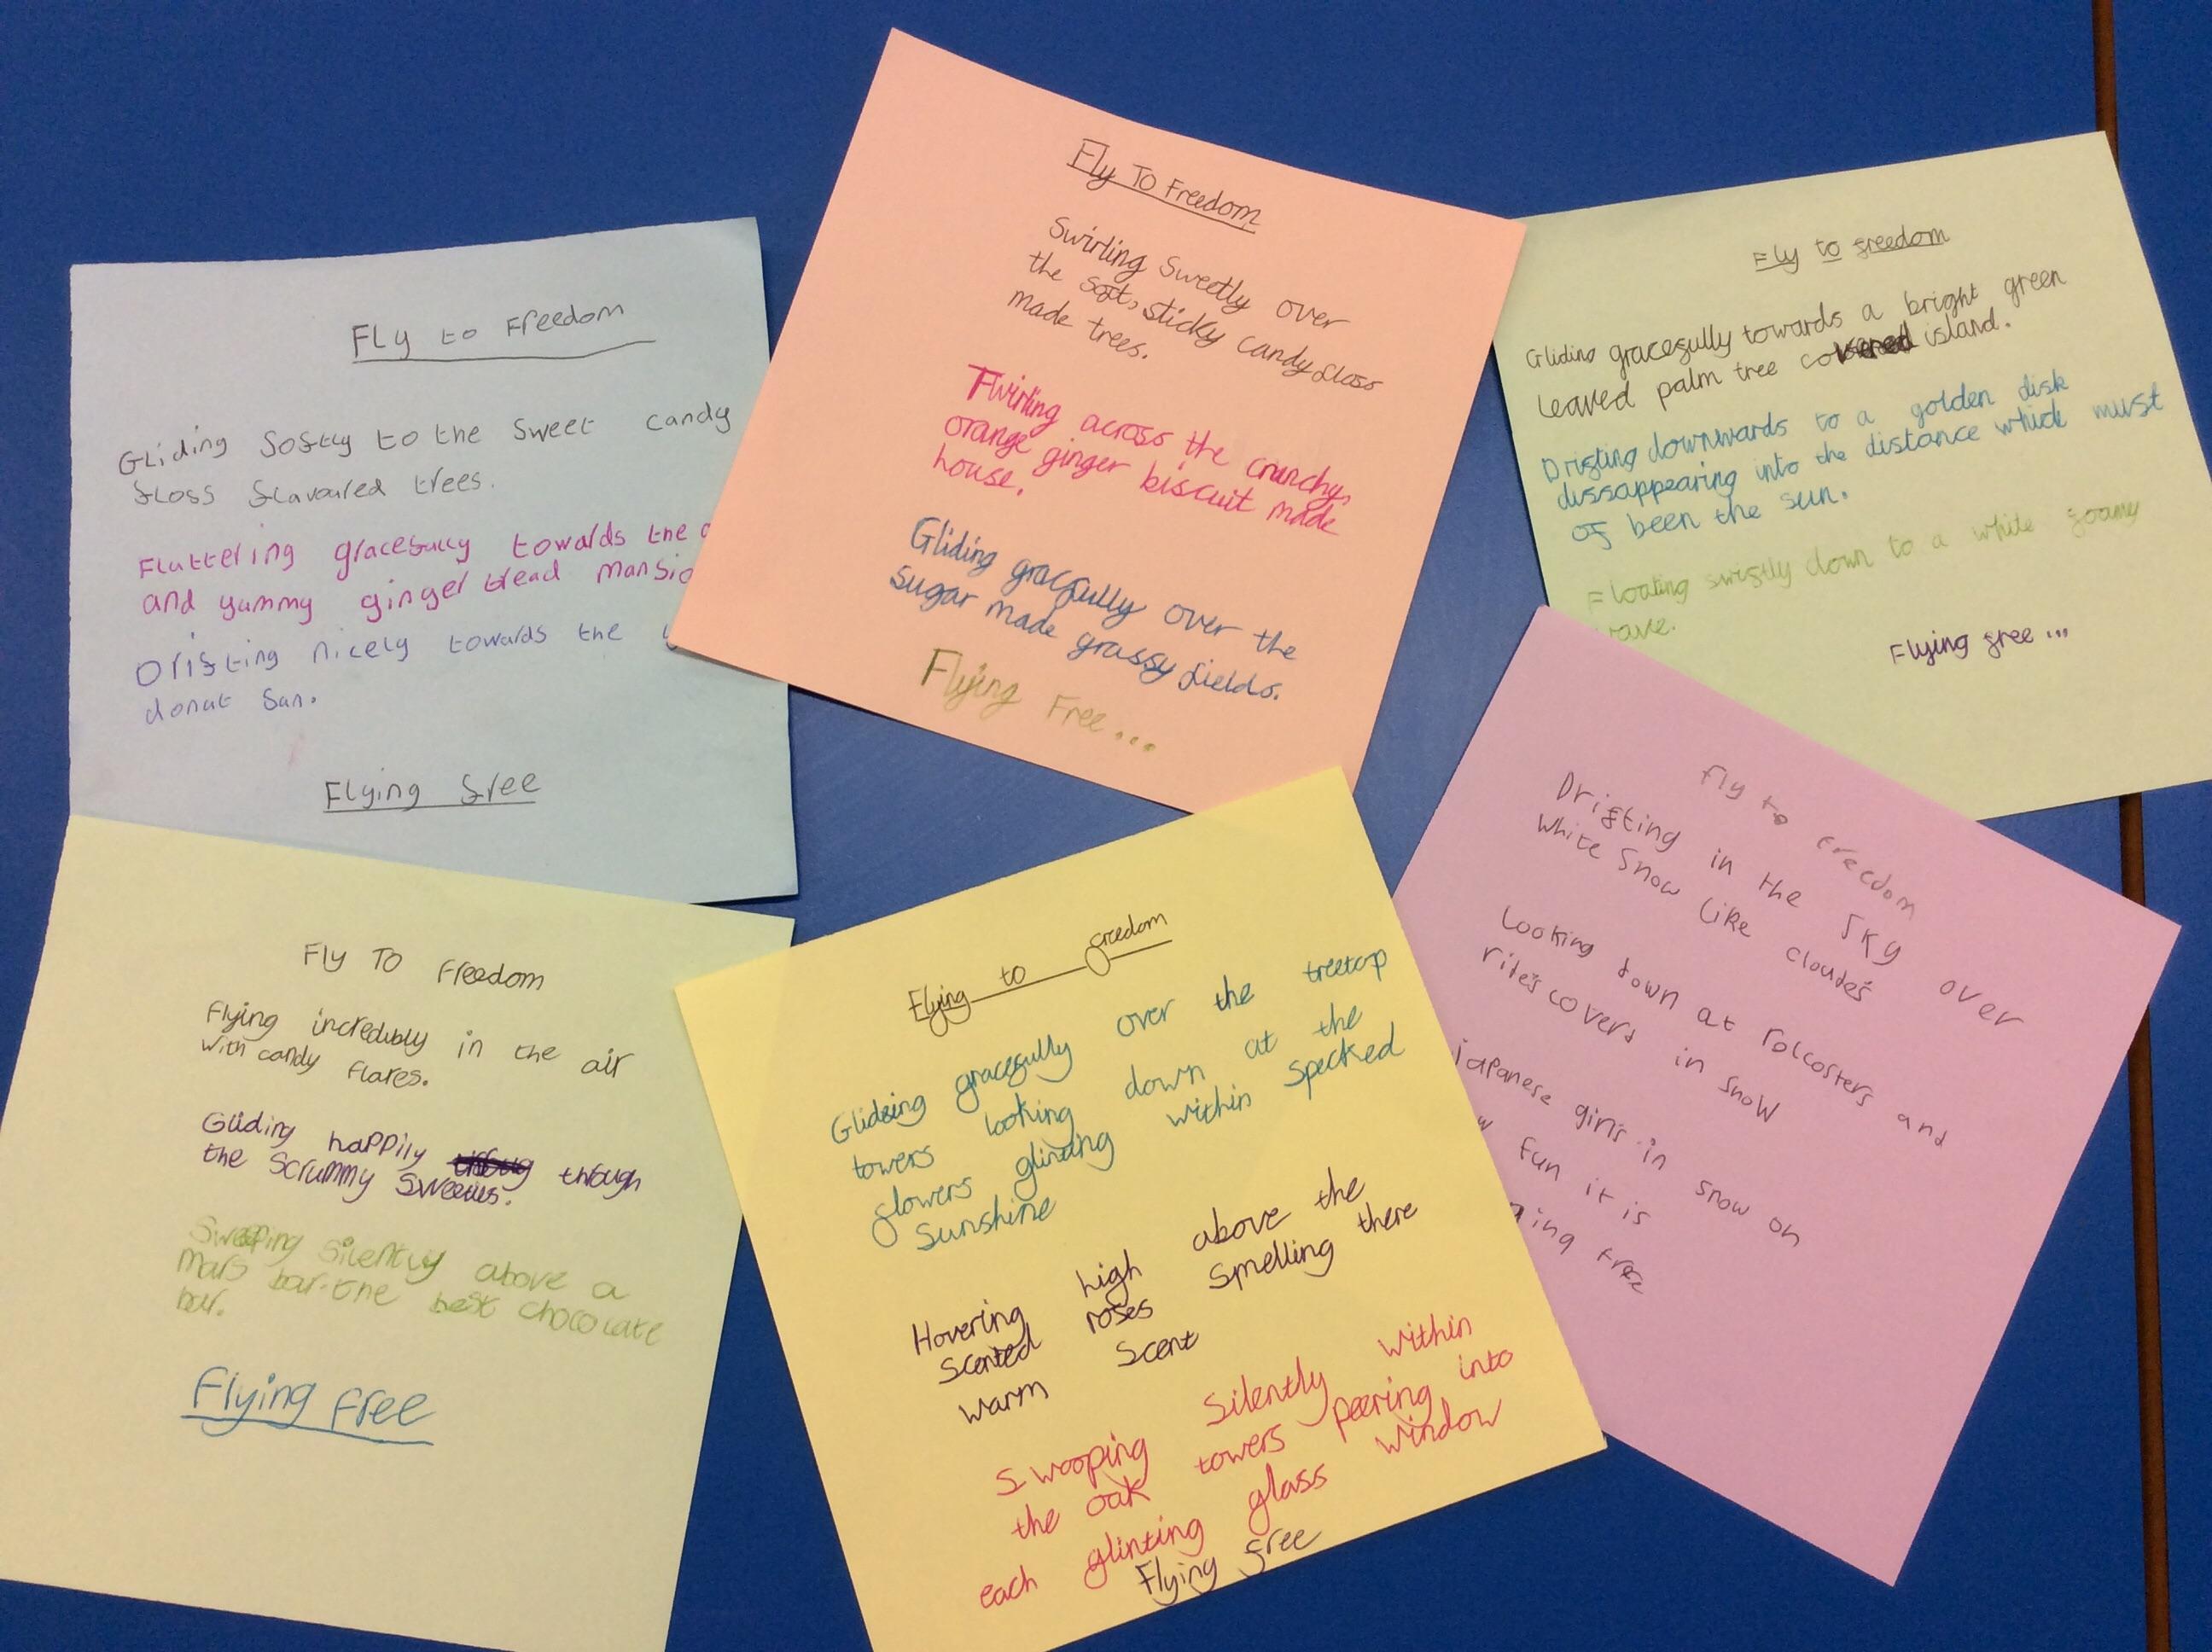 Fly to Freedom
Gliding softly to the sweet candy
floss flavoured trees.
Fluttering gracefully towards the
and yummy ginger bread
Drifting nicely towards the
donut sun.
Flying free
Fly To Freedom
Swirling sweetly over
the soft, sticky candy floss
made trees.
Twirling across the crunchy,
orange ginger biscuit made
house.
Gliding gracfully over the
sugar made grassy fields.
Flying Free...
Fly to freedom
Gliding gracefully towards a bright green
leaved palm tree covered island.
Drifting downwards to a golden disk
dissappearing into the distance which must
of been the sun.
Floating swiftly down to a white foamy
Flying free...
Fly To Freedom
Flying incredibly in the air
with candy flares.
Gliding happily through
the scrummy sweeties.
Sweeping silently above a
Mars bar-the best chocolate
bar.
Flying free
Flying to freedom
Glideing gracefully over the treetop
towers looking down at the
flowers glinting within specked
sunshine
Hovering high above the
scented roses smelling there
warm scent
Swooping silently within
the oak towers peering into
each glinting glass window
Flying free
fly to freedom
Drifting in the sky over
white snow like cloudes
Looking down at rolcosters and
rides covers in snow
Japanese girls in snow on
fun it is
free